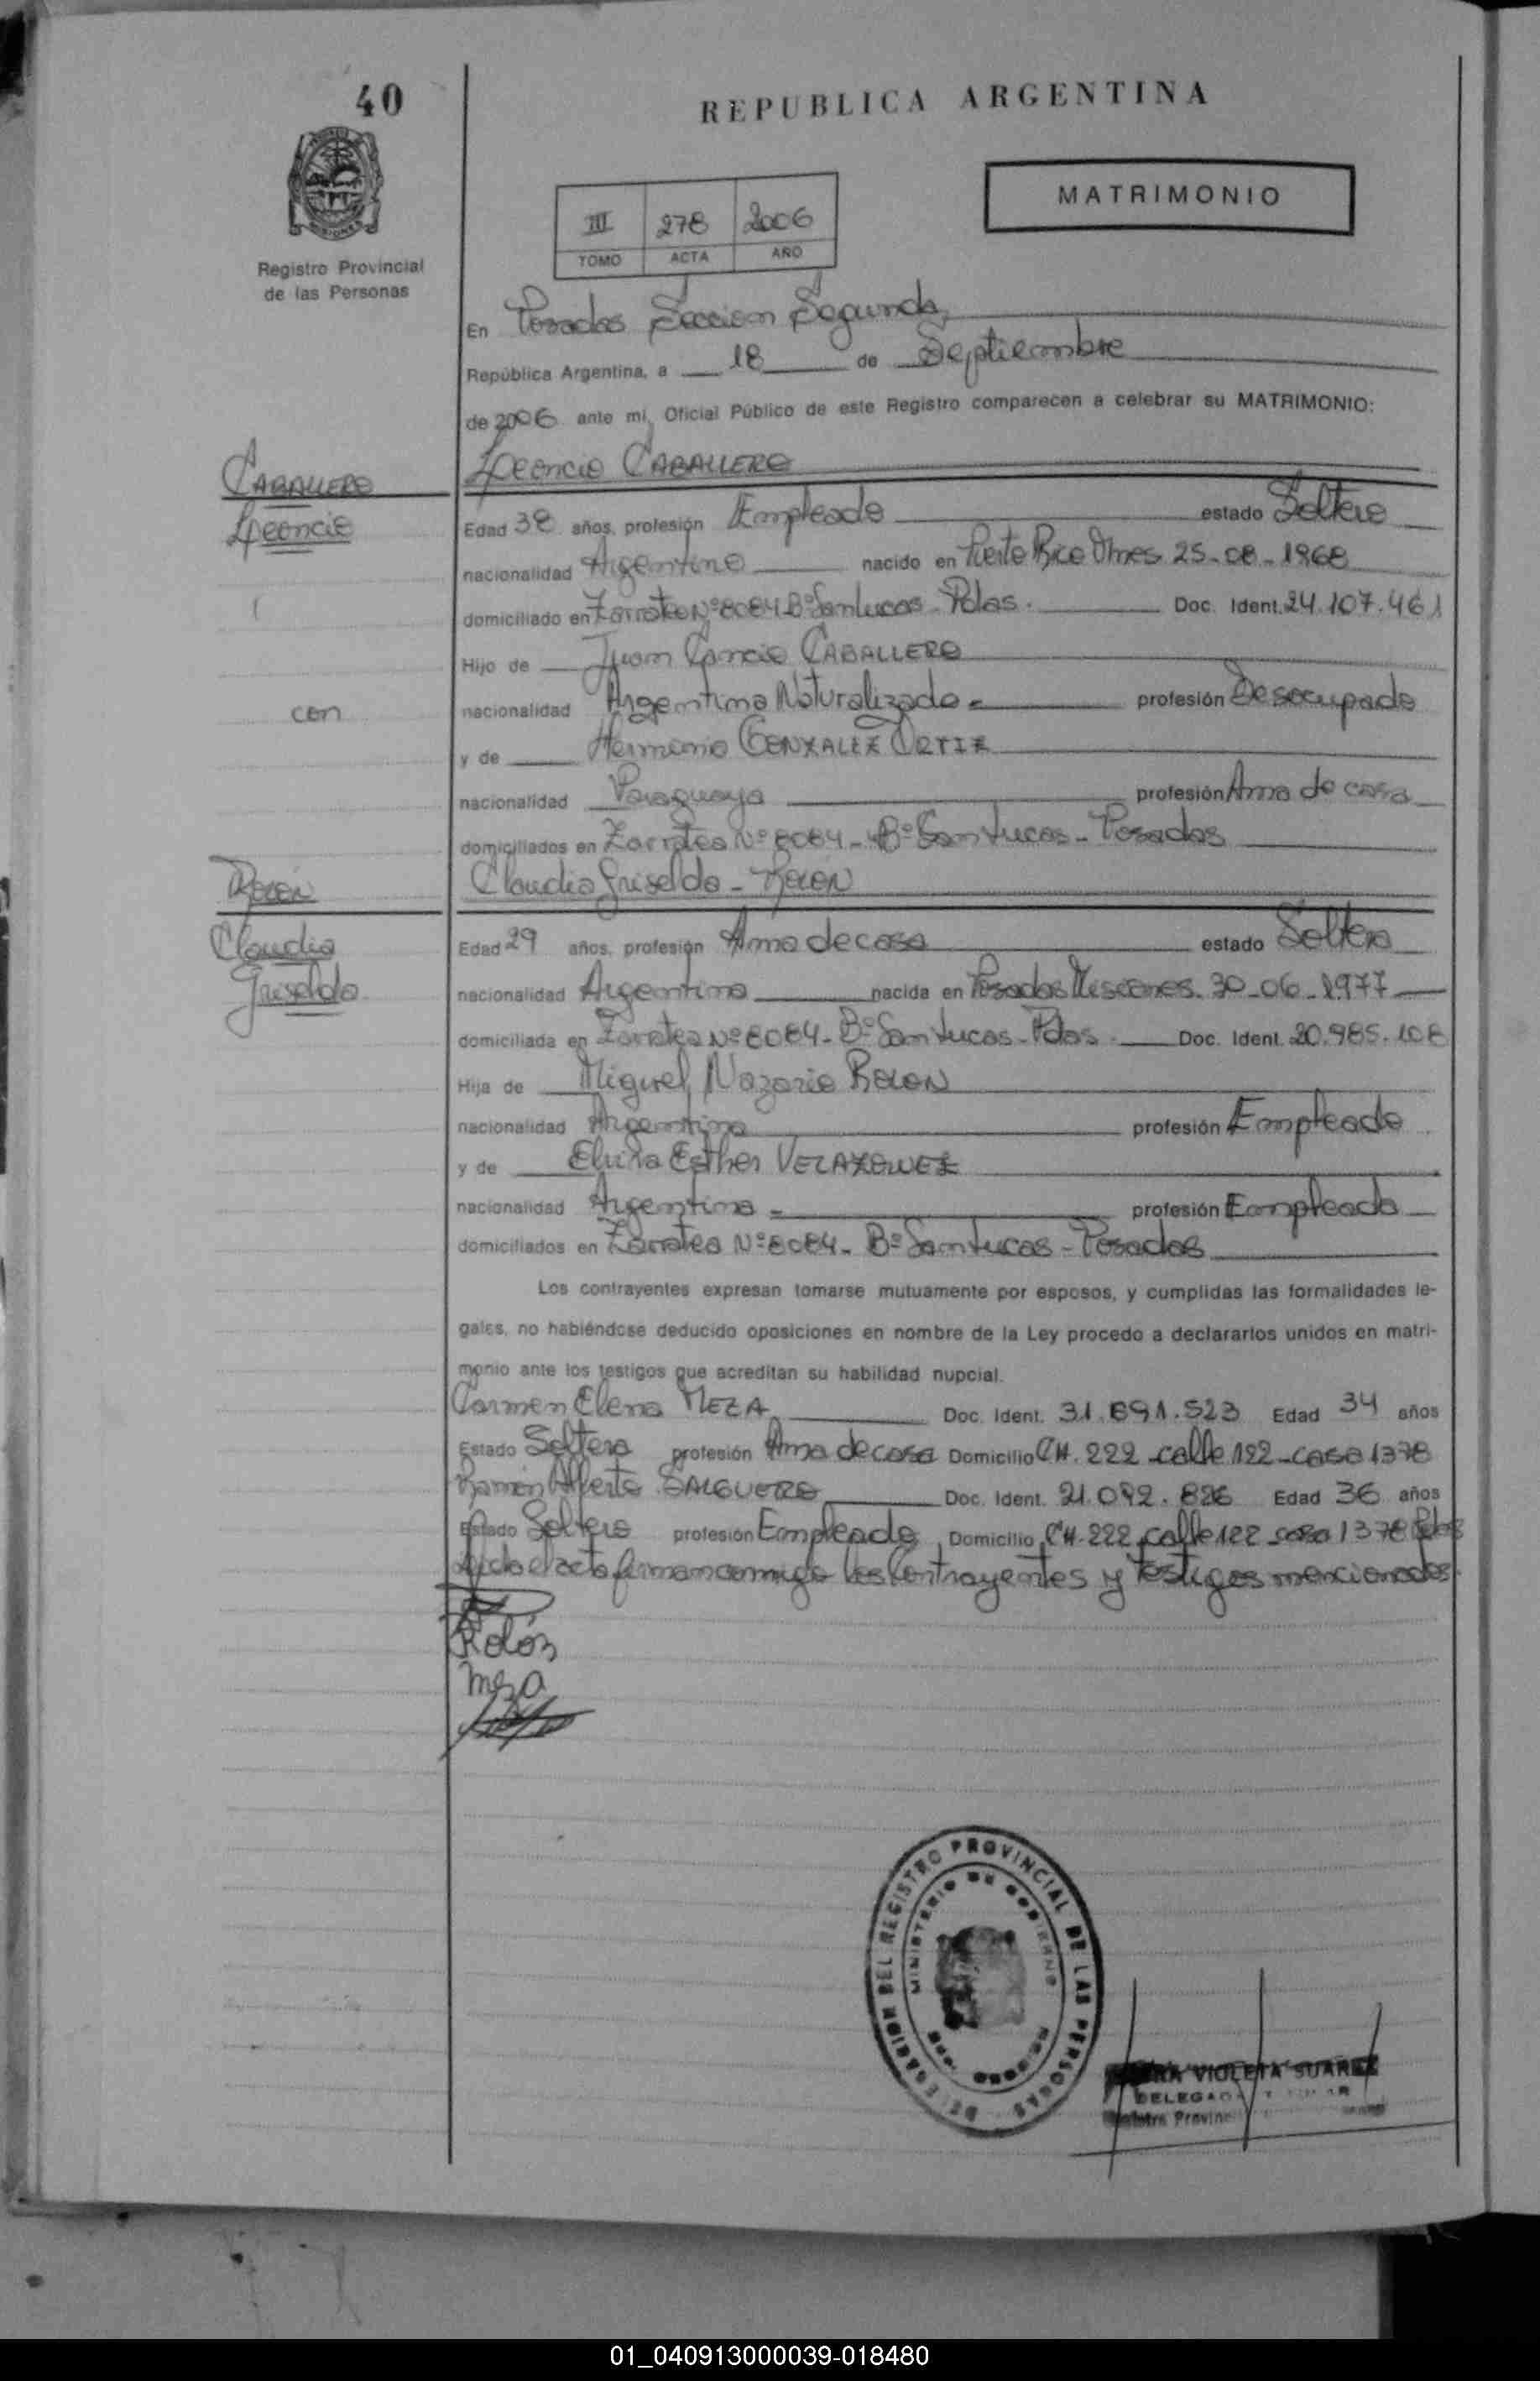 40
REPUBLICA ARGENTINA
MATRIMONIO
III 278 2006
TOMO ACTA AÑO
Registro Provincial
de las Personas
En Posadas Seccion Segunda,
República Argentina, a 18 de Septiembre
de 2006 ante mi, Oficial Público de este Registro comparecen a celebrar su MATRIMONIO:
CABALLERO
Leoncio CABALLERO
Leoncio
Edad 38 años, profesión Empleado estado Soltero
nacionalidad Argentino nacido en Puerto Rico Mnes. 25-08-1968
domiciliado en Zarratea Nº 8084 Bº San Lucas - Pdas. Doc. Ident. 24.107.461
Hijo de Juan Cancio CABALLERO
con
nacionalidad Argentino Naturalizado - profesión Desocupado
y de Herminia GONZALEZ ORTIZ
nacionalidad Paraguaya profesión Ama de casa
domiciliados en Zarratea Nº 8084 - Bº San Lucas - Posadas
ROLON
Claudia Griselda - ROLON
Claudia
Griselda
Edad 29 años, profesión Ama de casa estado Soltera
nacionalidad Argentina nacida en Posadas Misiones. 30-06-1977
domiciliada en Zarratea Nº 8084 - Bº San Lucas - Pdas. Doc. Ident. 20.985.108
Hija de Miguel Nazario ROLON
nacionalidad Argentino profesión Empleado
y de Elvira Esther VELAZQUEZ
nacionalidad Argentina - profesión Empleada
domiciliados en Zarratea Nº 8084 - Bº San Lucas - Posadas
Los contrayentes expresan tomarse mutuamente por esposos, y cumplidas las formalidades le-
gales, no habiéndose deducido oposiciones en nombre de la Ley procedo a declararlos unidos en matri-
monio ante los testigos que acreditan su habilidad nupcial.
Carmen Elena MEZA Doc. Ident. 31.891.523 Edad 34 años
Estado Soltera profesión Ama de casa Domicilio CH. 222 calle 122 - casa 1378
Ramón Alberto SALGUERO Doc. Ident. 21.092.826 Edad 36 años
Estado Soltero profesión Empleado Domicilio CH. 222 calle 122 - casa 1378 Pdas
Leida el acta firman conmigo los Contrayentes y Testigos mencionados.
Rolón
Meza
DELEGACION DEL REGISTRO PROVINCIAL DE LAS PERSONAS
MINISTERIO DE GOBIERNO
VIOLETA SUAREZ
DELEGADA
Registro Provincial
01_040913000039-018480